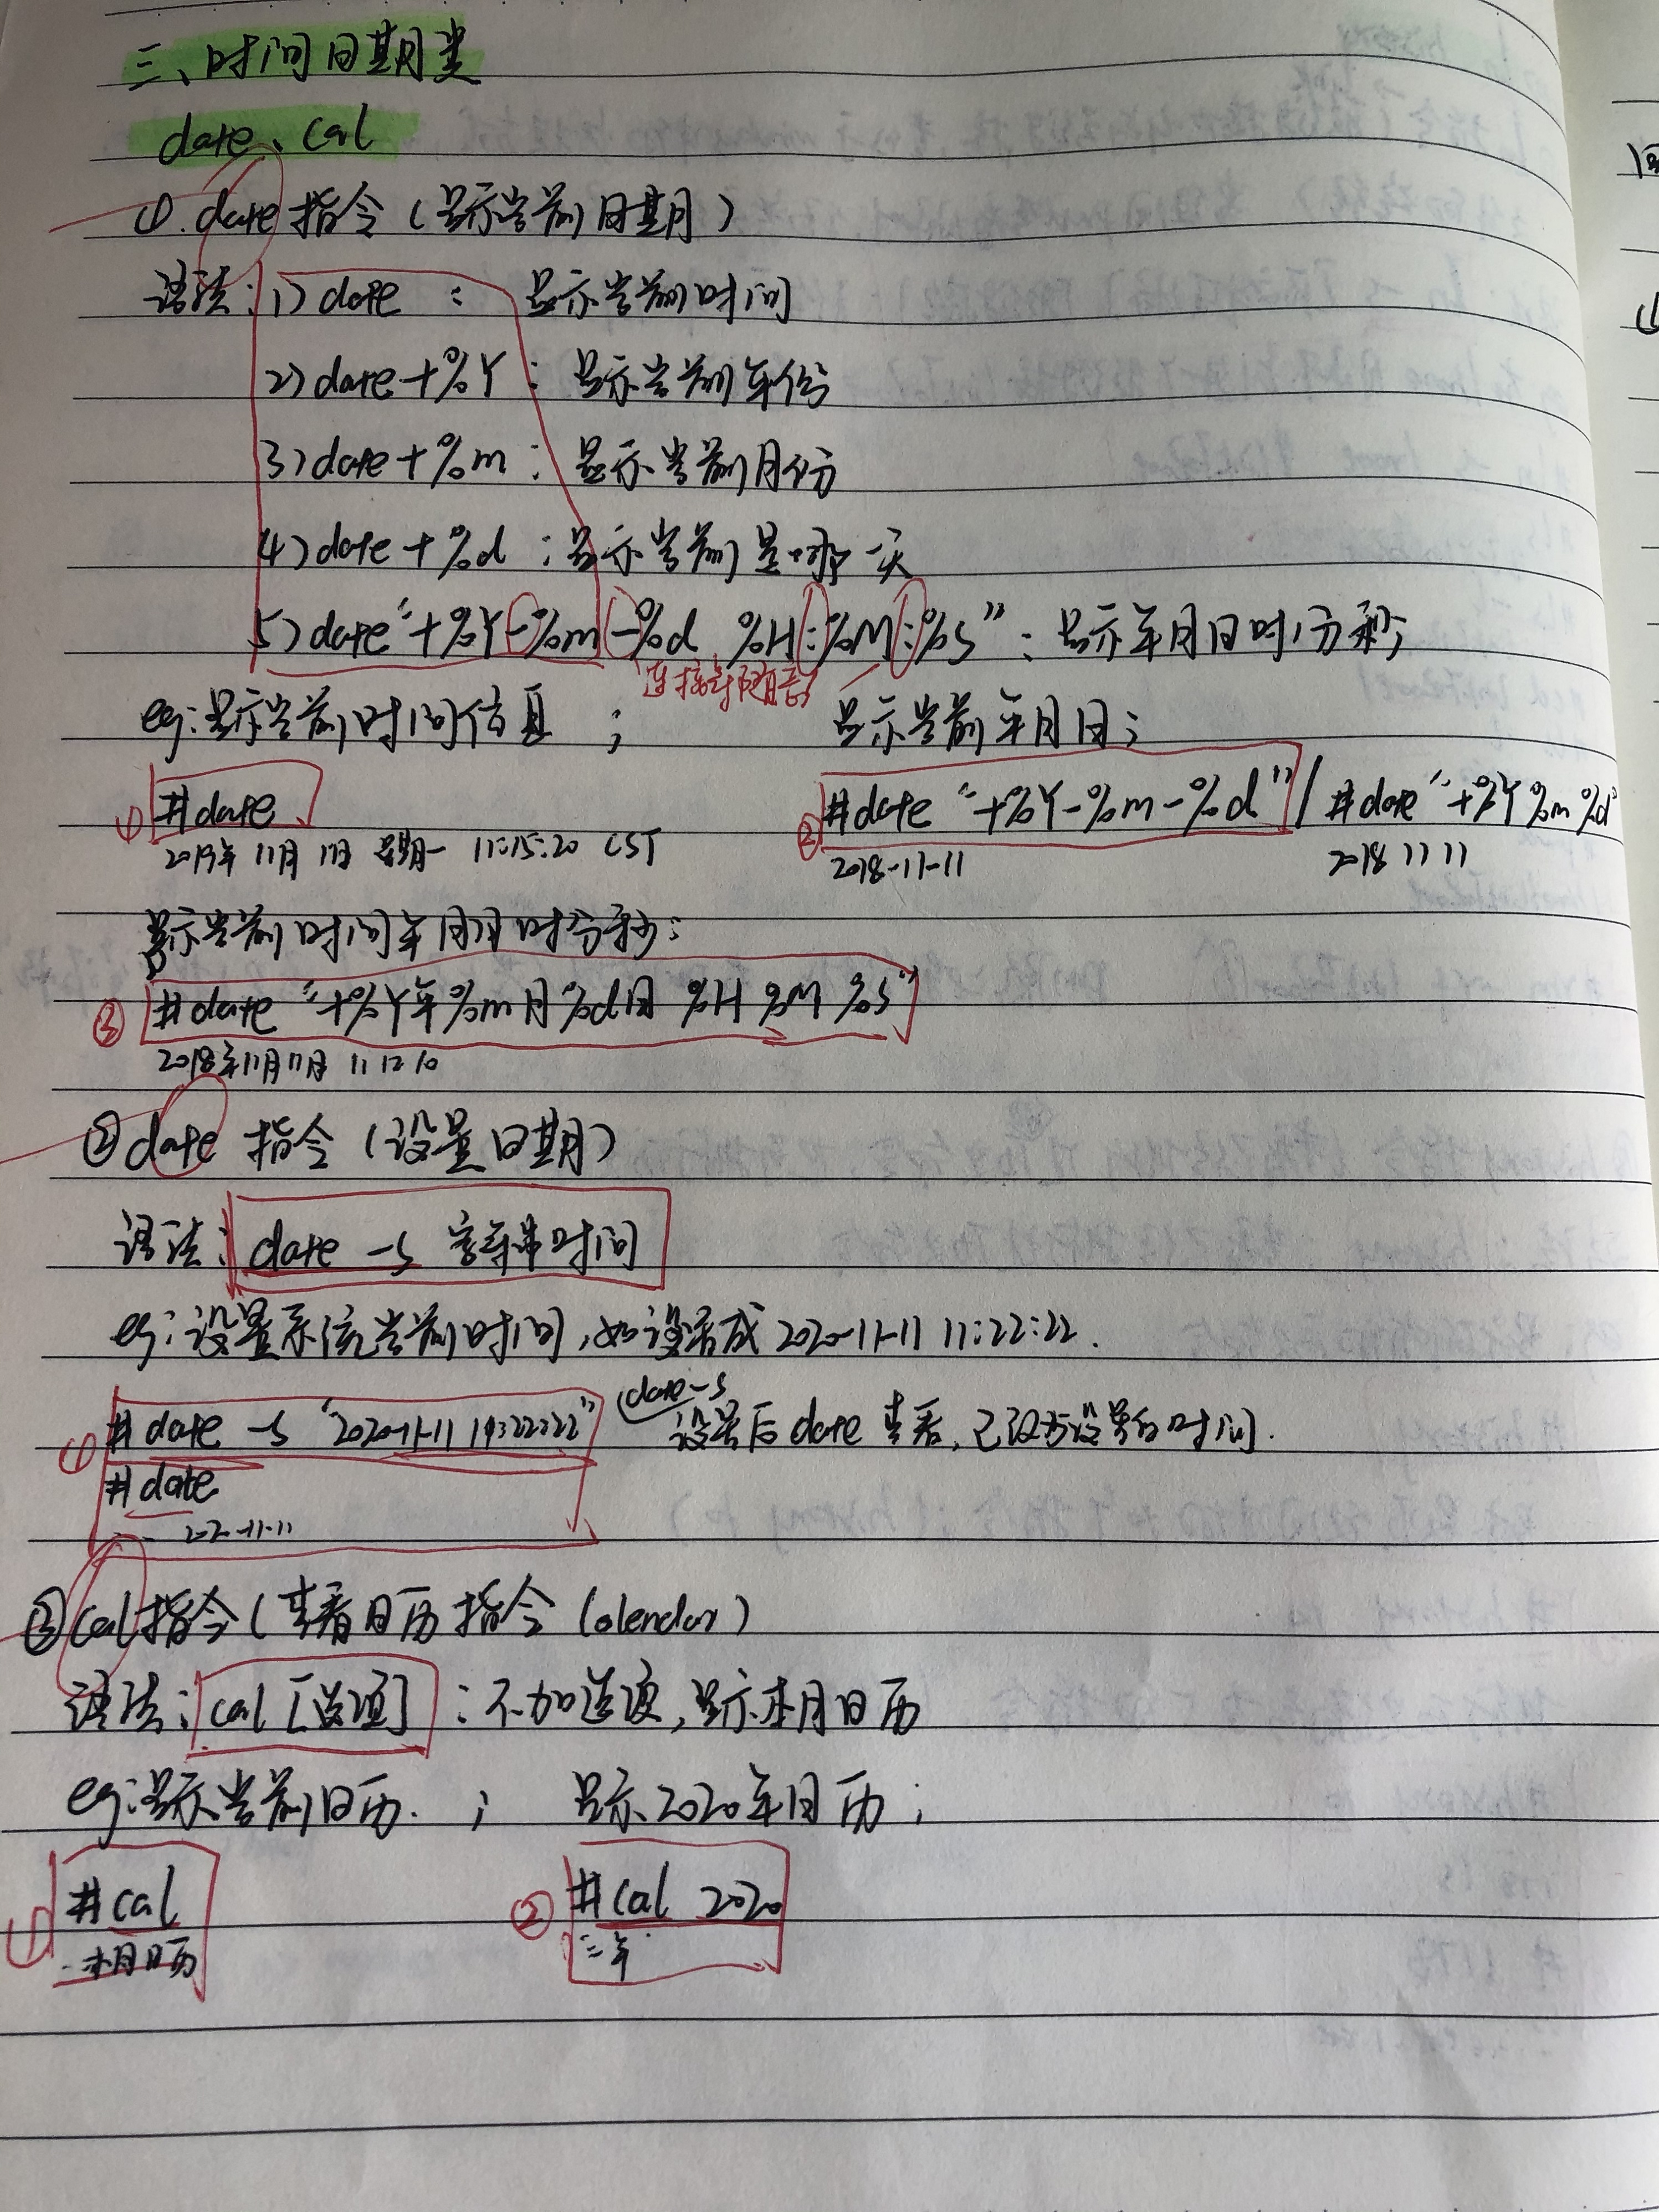 三、时间日期类
date、cal
①.date指令(显示当前日期)
语法:1)date : 显示当前时间
2)date+%Y : 显示当前年份
3)date+%m : 显示当前月份
4)date+%d : 显示当前是哪一天
5)date"+%Y-%m-%d %H:%M:%S" : 显示年月日时分秒
连接符随意
eg:显示当前时间信息 ; 显示当前年月日;
① #date ② #date "+%Y-%m-%d" / #date "+%Y %m %d"
11月 11日 星期一 11:15:20 CST 2018-11-11 2018 11 11
显示当前时间年月日时分秒:
③ #date "+%Y年%m月%d日 %H %M %S"
2018年11月11日 11 12 10
②date 指令(设置日期)
语法: date -s 字符串时间
eg:设置系统当前时间,如设置成2020-11-11 11:22:22.
① #date -s "2020-11-11 11:22:22" date-s 设置后date查看,已设为设置的时间.
#date
2020-11-11
③cal指令(查看日历指令Calendar)
语法: cal [选项] : 不加选项,显示本月日历
eg:显示当前日历. ; 显示2020年日历;
① #cal ② #cal 2020
本月日历